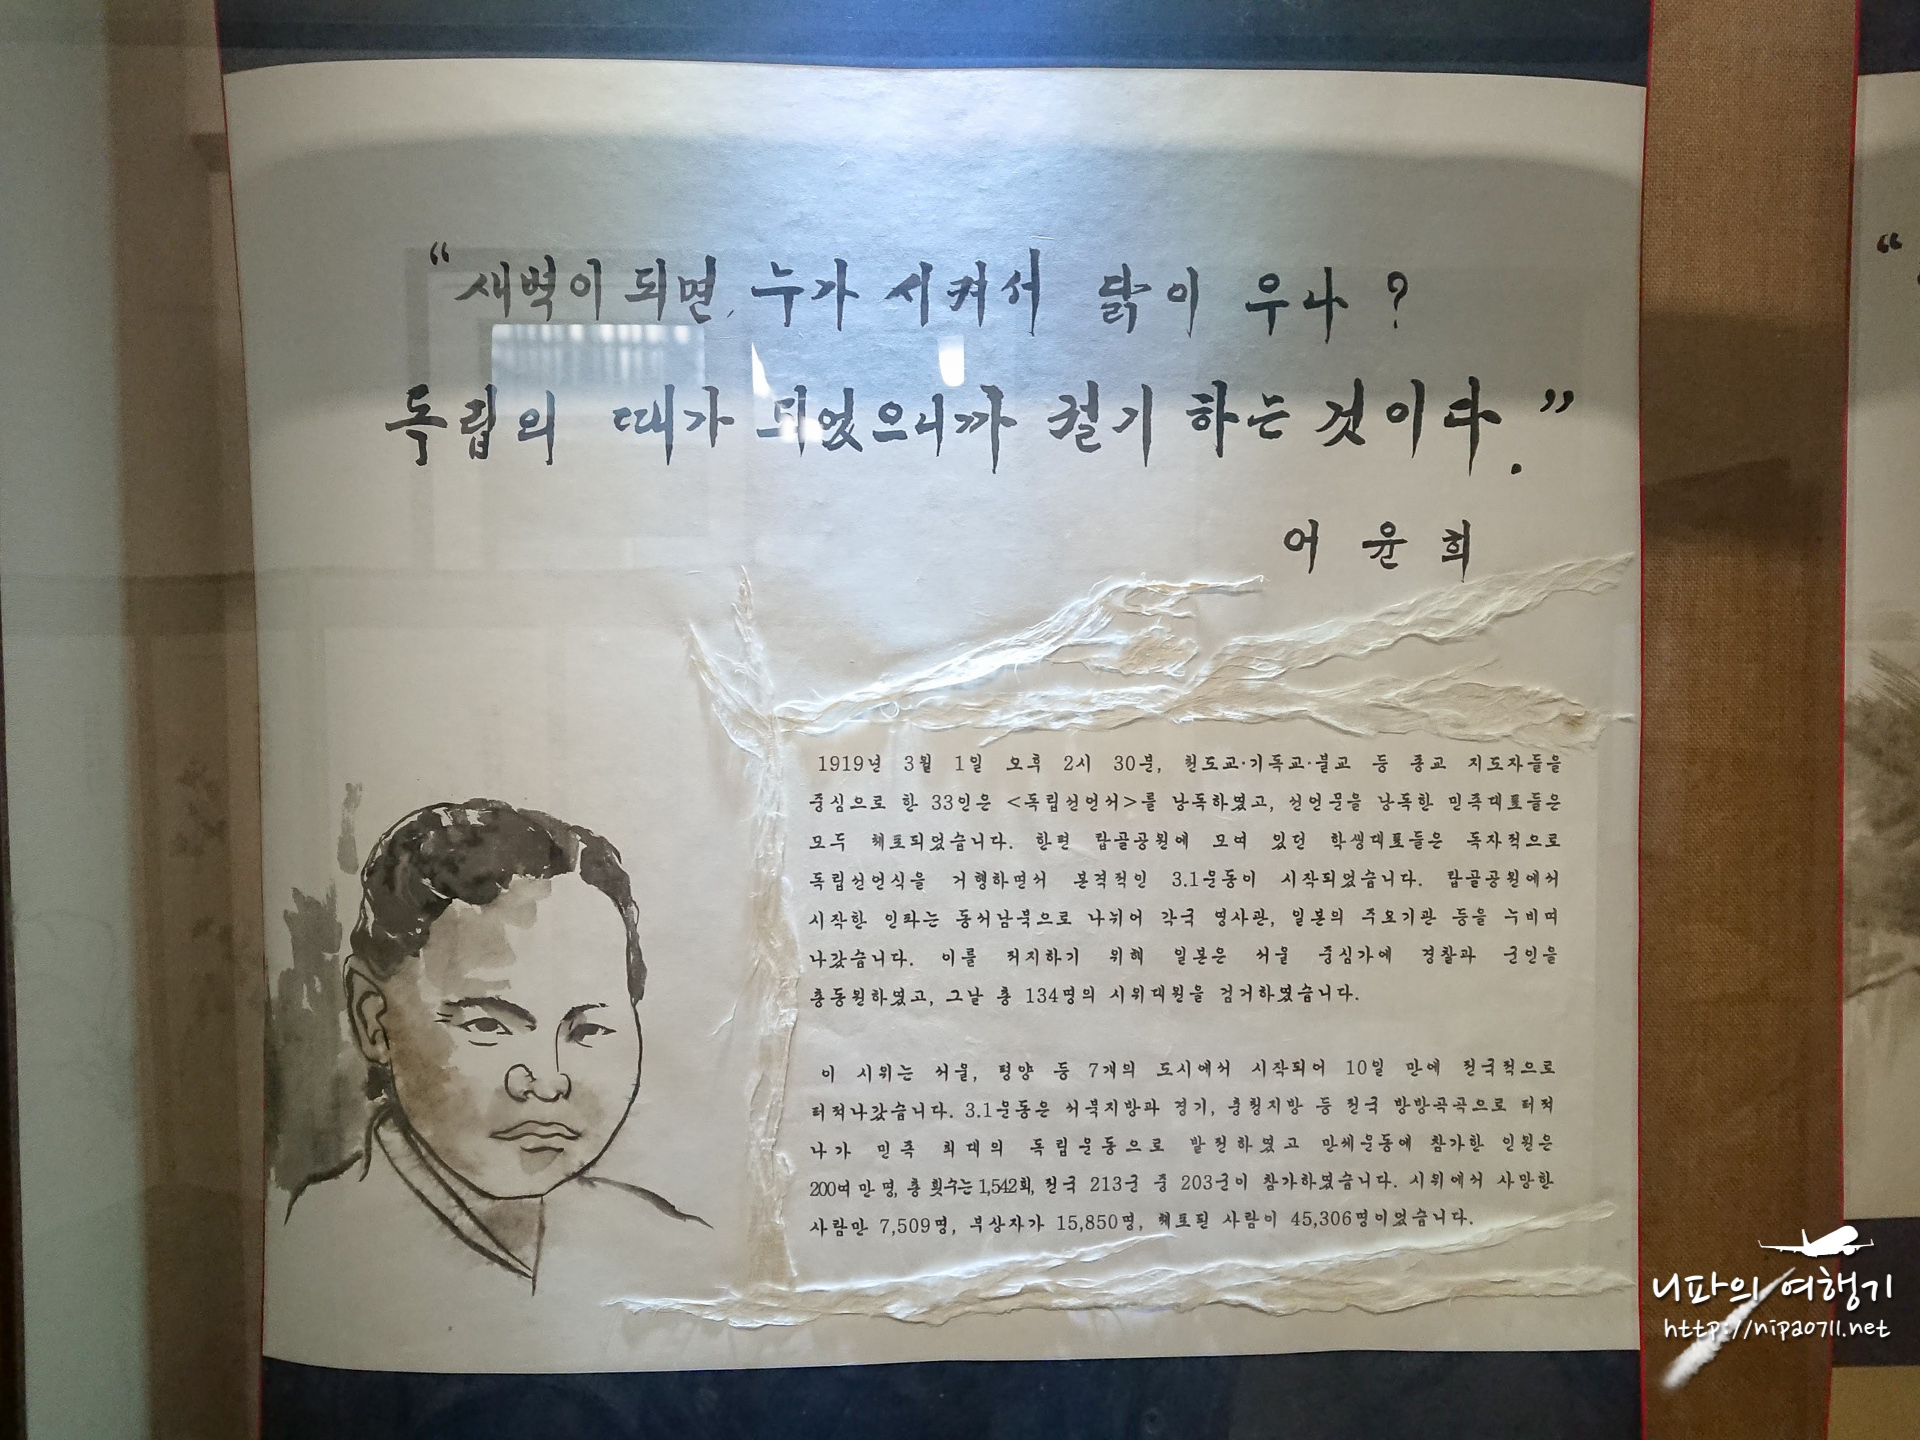 “새벽이 되면, 누가 시켜서 닭이 우나?
독립의 때가 되었으니까 궐기 하는 것이다.”
어윤희
1919년 3월 1일 오후 2시 30분, 천도교·기독교·불교 등 종교 지도자들을
중심으로 한 33인은 <독립선언서>를 낭독하였고, 선언문을 낭독한 민족대표들은
모두 체포되었습니다. 한편 탑골공원에 모여 있던 학생대표들은 독자적으로
독립선언식을 거행하면서 본격적인 3.1운동이 시작되었습니다. 탑골공원에서
시작한 인파는 동서남북으로 나뉘어 각국 영사관, 일본의 주요기관 등을 누비며
나갔습니다. 이를 저지하기 위해 일본은 서울 중심가에 경찰과 군인을
총동원하였고, 그날 총 134명의 시위대원을 검거하였습니다.
이 시위는 서울, 평양 등 7개의 도시에서 시작되어 10일 만에 전국적으로
터져나갔습니다. 3.1운동은 서북지방과 경기, 충청지방 등 전국 방방곡곡으로 터져
나가 민족 최대의 독립운동으로 발전하였고 만세운동에 참가한 인원은
200여 만 명, 총 횟수는 1,542회, 전국 213군 중 203군이 참가하였습니다. 시위에서 사망한
사람만 7,509명, 부상자가 15,850명, 체포된 사람이 45,306명이었습니다.
니파의 여행기
http://nipa0711.net